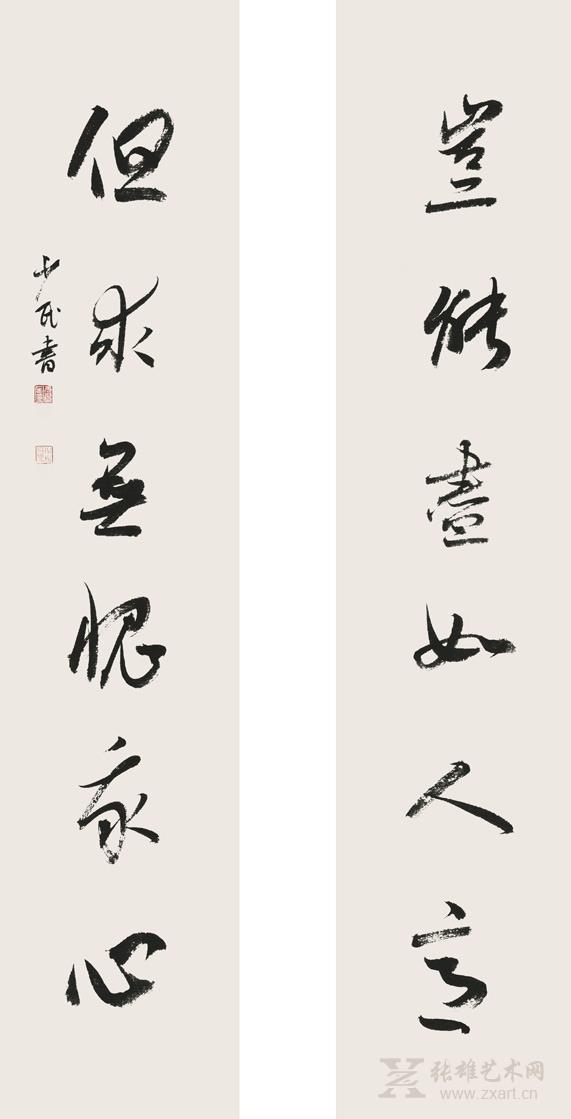 豈能盡如人意
但求無愧我心
少民書
张雄艺术网
www.zxart.cn